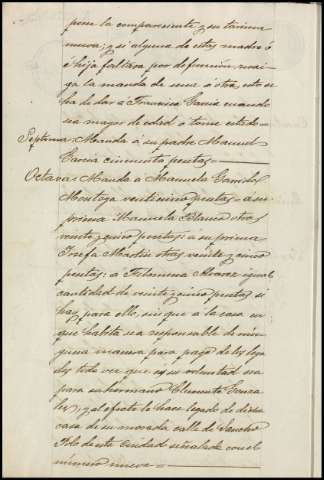 pone la compareciente y su tarima
nueva; y si alguna de estas madre ó
é hija faltara por defuncion,
ga la manda de una ó otra, esto se
ha de dar á Francisca Garcia cuando
sea mayor de edad ó tome estado.
Septima: Manda á su padre Manuel
Garcia cincuenta pesetas
Octava: Manda á Manuela
Montoya veinticinco pesetas á su
prima Manuela Blanco otras
veinte y cinco pesetas: á su prima
Josefa Martin otras veinte y cinco
pesetas: á Filomena Alvarez igual
cantidad de veinte y cinco pesetas si
hay para ello, sin que á la casa en
que habita sea responsable de nin
guna manera para pago de los lega
dos toda vez que su voluntad sea
para su hermano Clemente Gonza
lez; y al efecto le hace legado de dicha
casa de su morada calle de Sancho
Polo de esta Ciudad señalada con el
número nueve